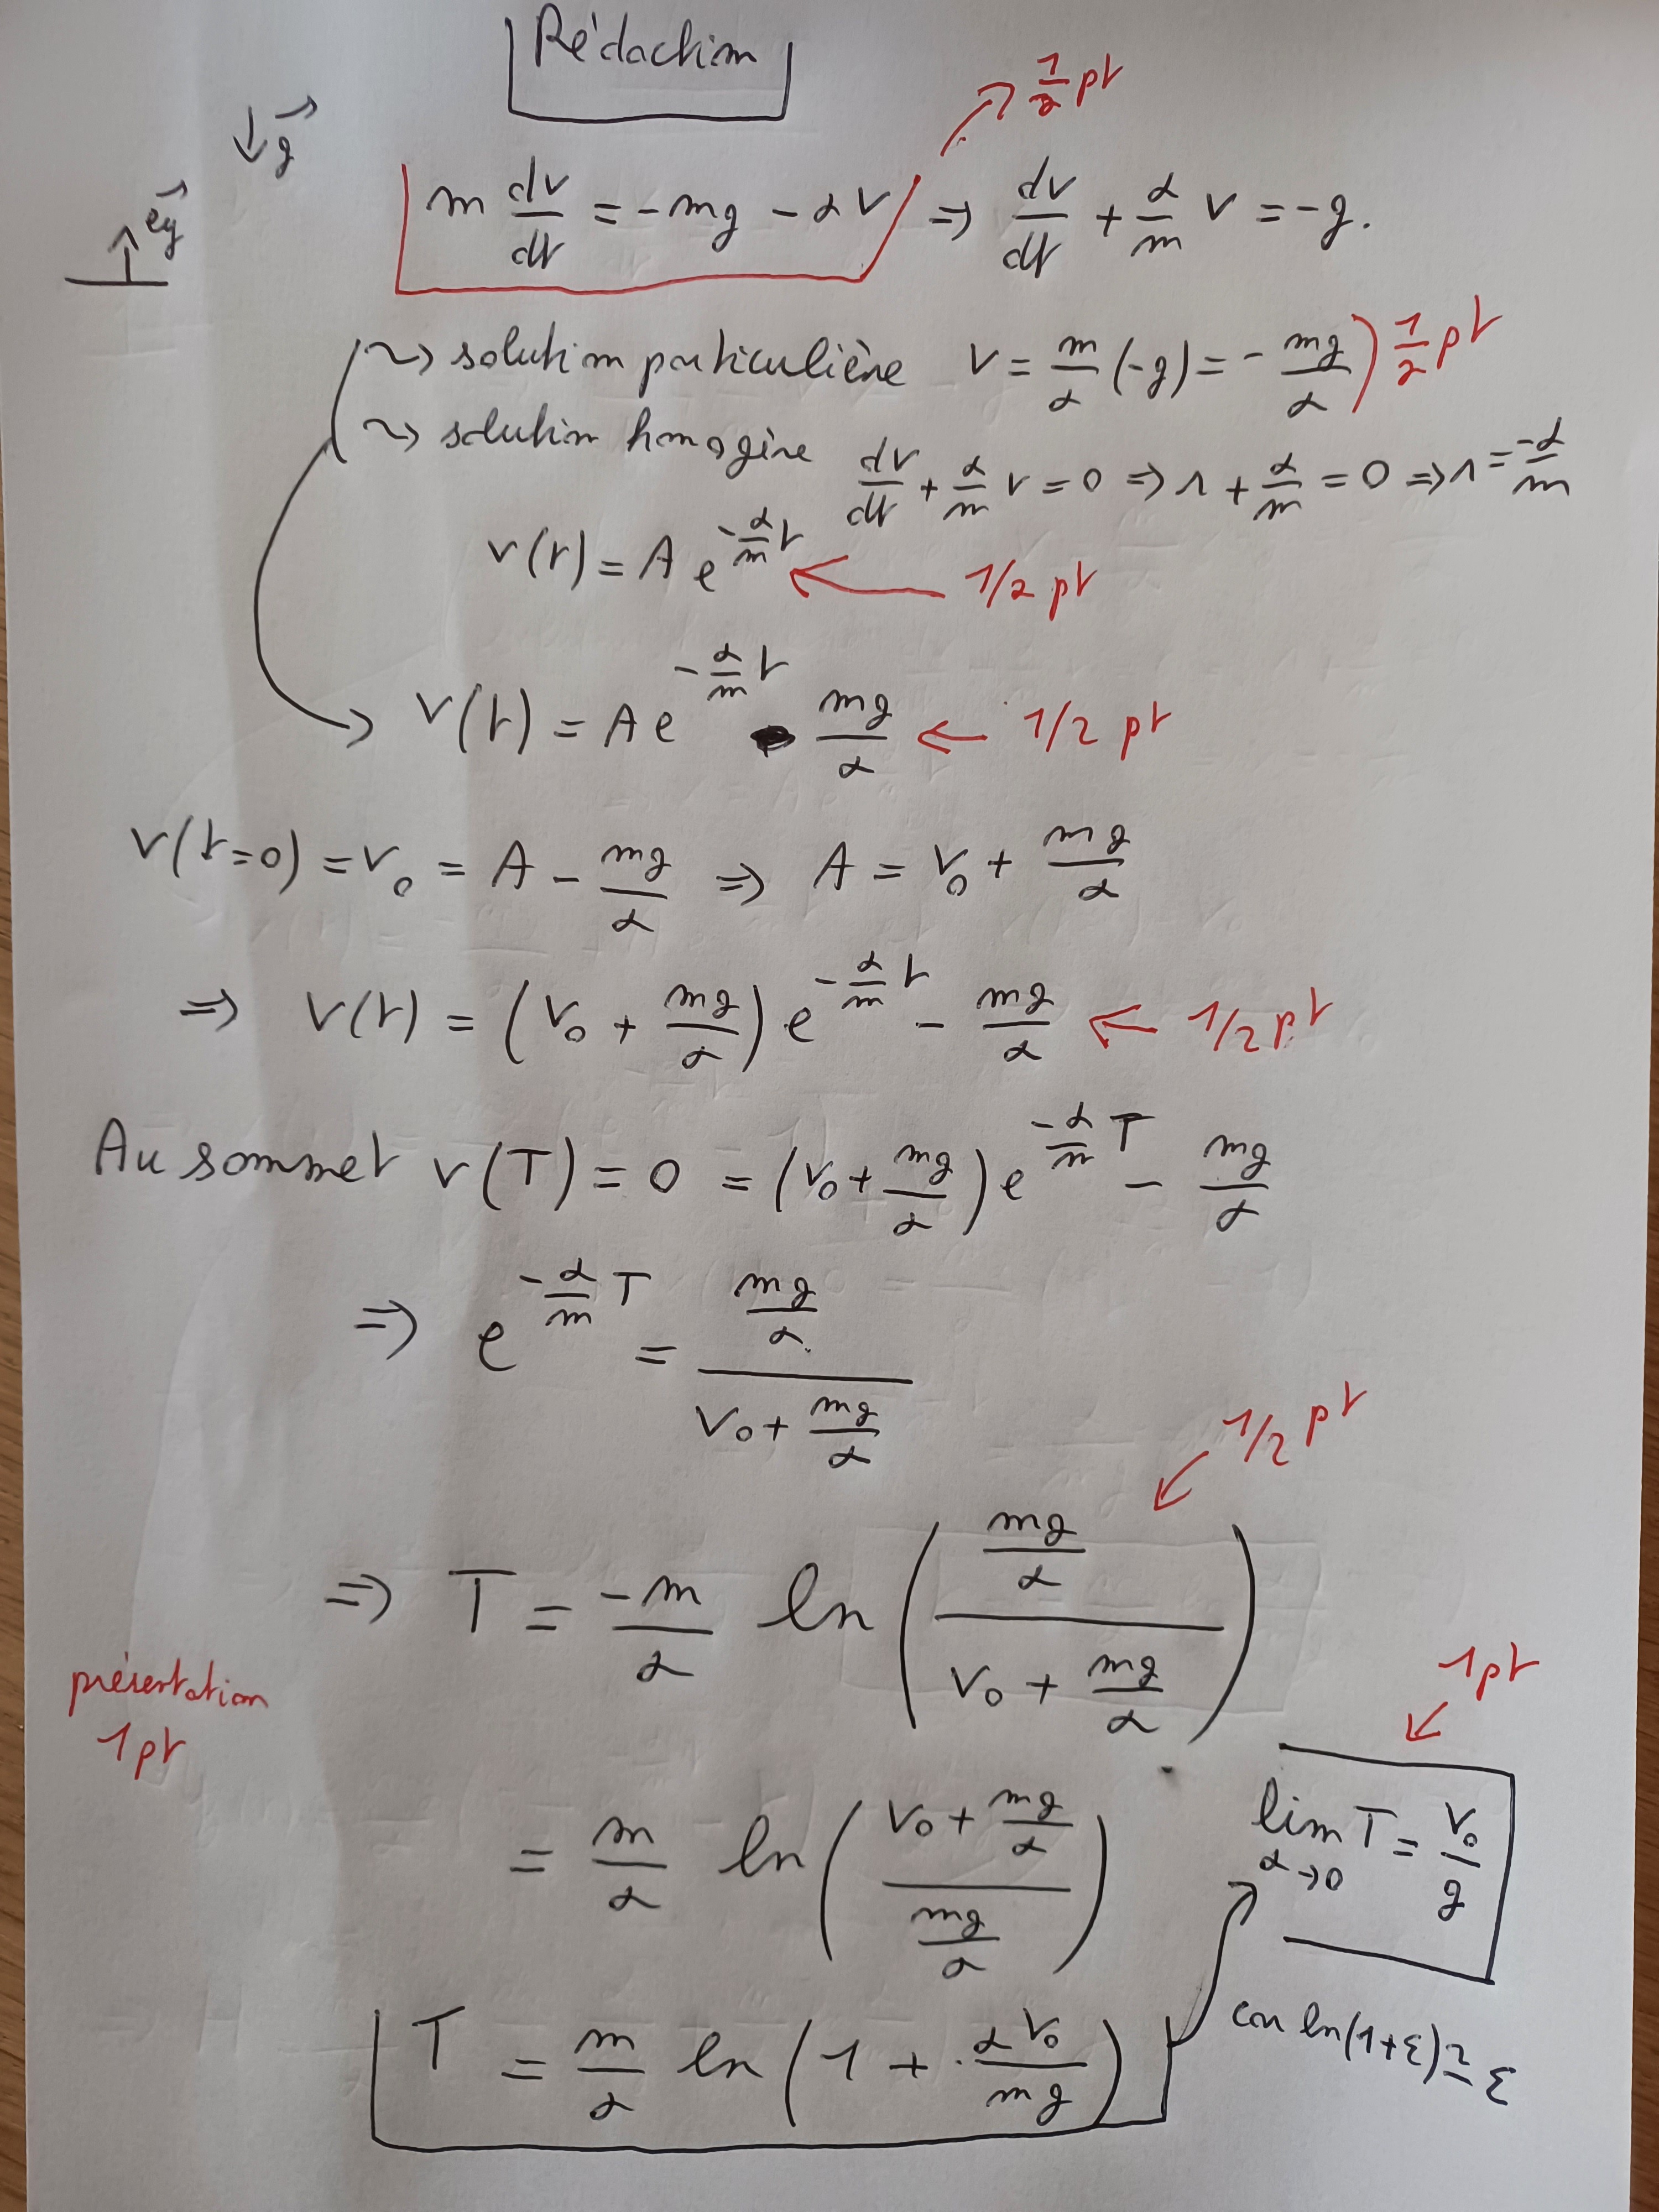 Rédaction
↓ g⃗
½ pt
e⃗y
m dv/dt = -mg - αv ⇒ dv/dt + α/m v = -g.
⤳ solution particulière v = m/α (-g) = - mg/α ) ½ pt
⤳ solution homogène dv/dt + α/m v = 0 ⇒ r + α/m = 0 ⇒ r = -α/m
v(t) = A e^(-α/m t) ← 1/2 pt
→ v(t) = A e^(-α/m t) - mg/α ← 1/2 pt
v(t=0) = v₀ = A - mg/α ⇒ A = v₀ + mg/α
⇒ v(t) = (v₀ + mg/α) e^(-α/m t) - mg/α ← 1/2 pt
Au sommet v(T) = 0 = (v₀ + mg/α) e^(-α/m T) - mg/α
⇒ e^(-α/m T) = (mg/α) / (v₀ + mg/α)
1/2 pt
⇒ T = -m/α ln( (mg/α) / (v₀ + mg/α) )
présentation
1 pt
1 pt
= m/α ln( (v₀ + mg/α) / (mg/α) )
lim T = v₀/g
α→0
T = m/α ln(1 + αv₀/mg)
car ln(1+ε) ≃ ε